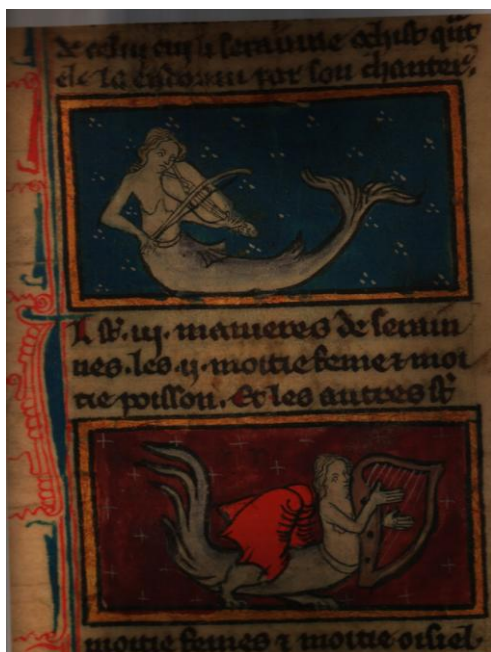 de celui cui li serainne ochist qñt
ele la endormi par son chanter.
I st̄ .iij. manieres de serain
nes. les .ij. moitie feme ⁊ moi
tie poisson. Et les autres st̄
moitie femes ⁊ moitie oisiel.